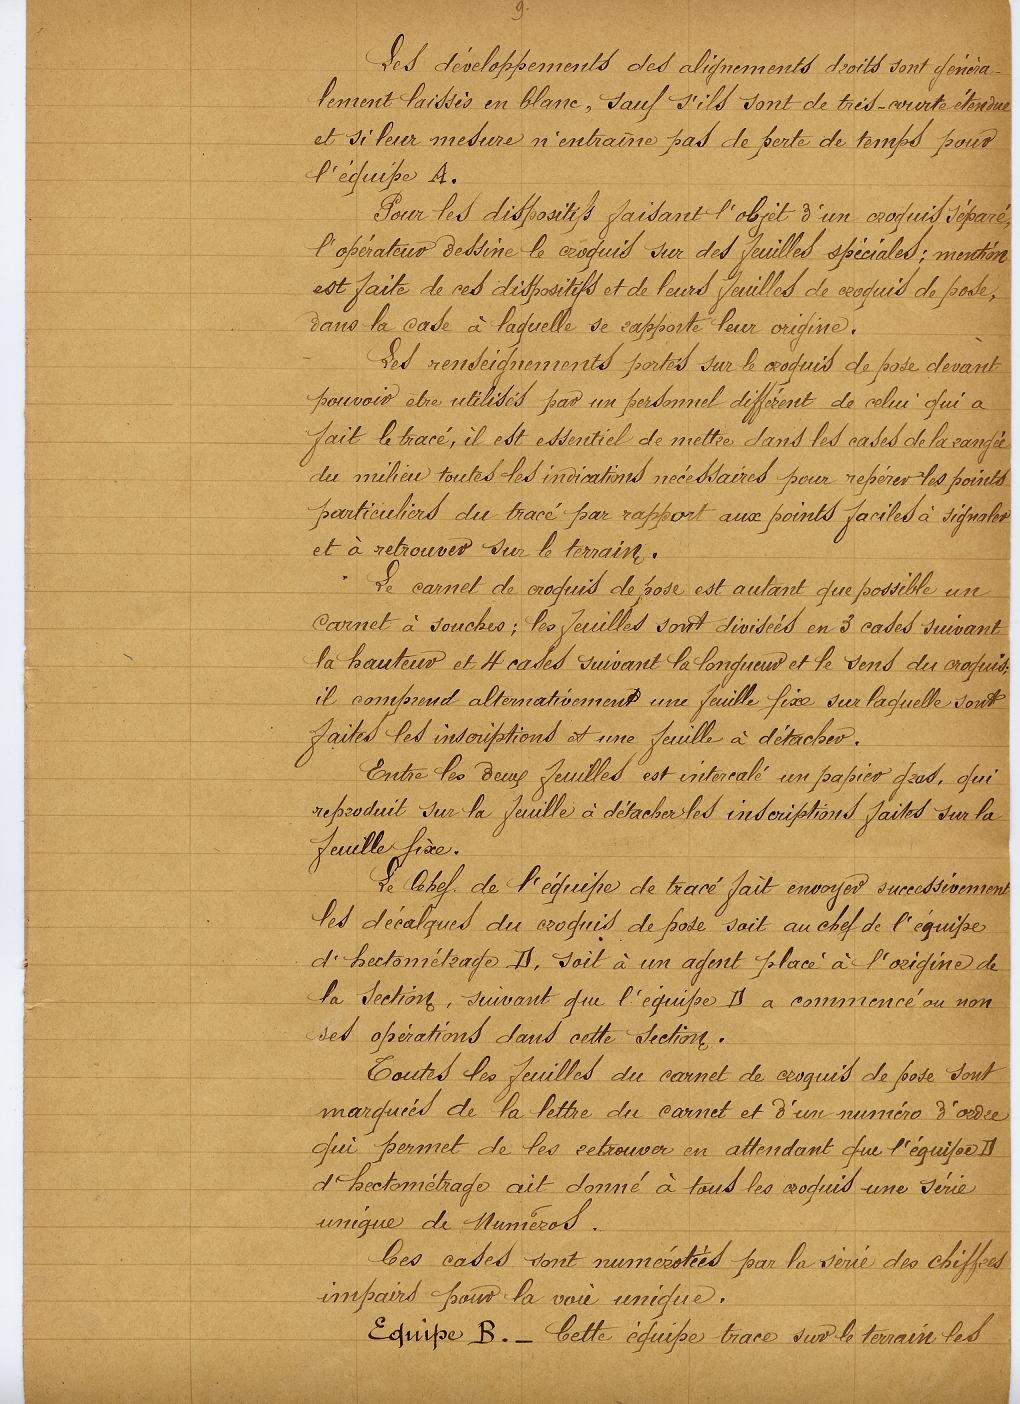 9.
Les développements des alignements droits sont généra-
lement laissés en blanc, sauf s'ils sont de très-courte étendue
et si leur mesure n'entraîne pas de perte de temps pour
l'équipe A.
Pour les dispositifs faisant l'objet d'un croquis séparé,
l'opérateur dessine le croquis sur des feuilles spéciales; mention
est faite de ces dispositifs et de leurs feuilles de croquis de pose,
dans la case à laquelle se rapporte leur origine.
Les renseignements portés sur le croquis de pose devant
pouvoir etre utilisés par un personnel différent de celui qui a
fait le tracé, il est essentiel de mettre dans les cases de la rangée
du milieu toutes les indications nécessaires pour repérer les points
particuliers du tracé par rapport aux points faciles à signaler
et à retrouver sur le terrain.
Le carnet de croquis de pose est autant que possible un
carnet à souches; les feuilles sont divisées en 3 cases suivant
la hauteur et 4 cases suivant la longueur et le sens du croquis;
il comprend alternativement une feuille fixe sur laquelle sont
faites les inscriptions et une feuille à détacher.
Entre les deux feuilles est intercalé un papier gras, qui
reproduit sur la feuille à détacher les inscriptions faites sur la
feuille fixe.
Le Chef de l'équipe de tracé fait envoyer successivement
les décalques du croquis de pose soit au chef de l'équipe
d'hectométrage D, soit à un agent placé à l'origine de
la Section, suivant que l'équipe D a commencé ou non
ses opérations dans cette Section.
Toutes les feuilles du carnet de croquis de pose sont
marquées de la lettre du carnet et d'un numéro d'ordre
qui permet de les retrouver en attendant que l'équipe D
d'hectométrage ait donné à tous les croquis une série
unique de Numéros.
Ces cases sont numérotées par la série des chiffres
impairs pour la voie unique.
Equipe B. — Cette équipe trace sur le terrain les